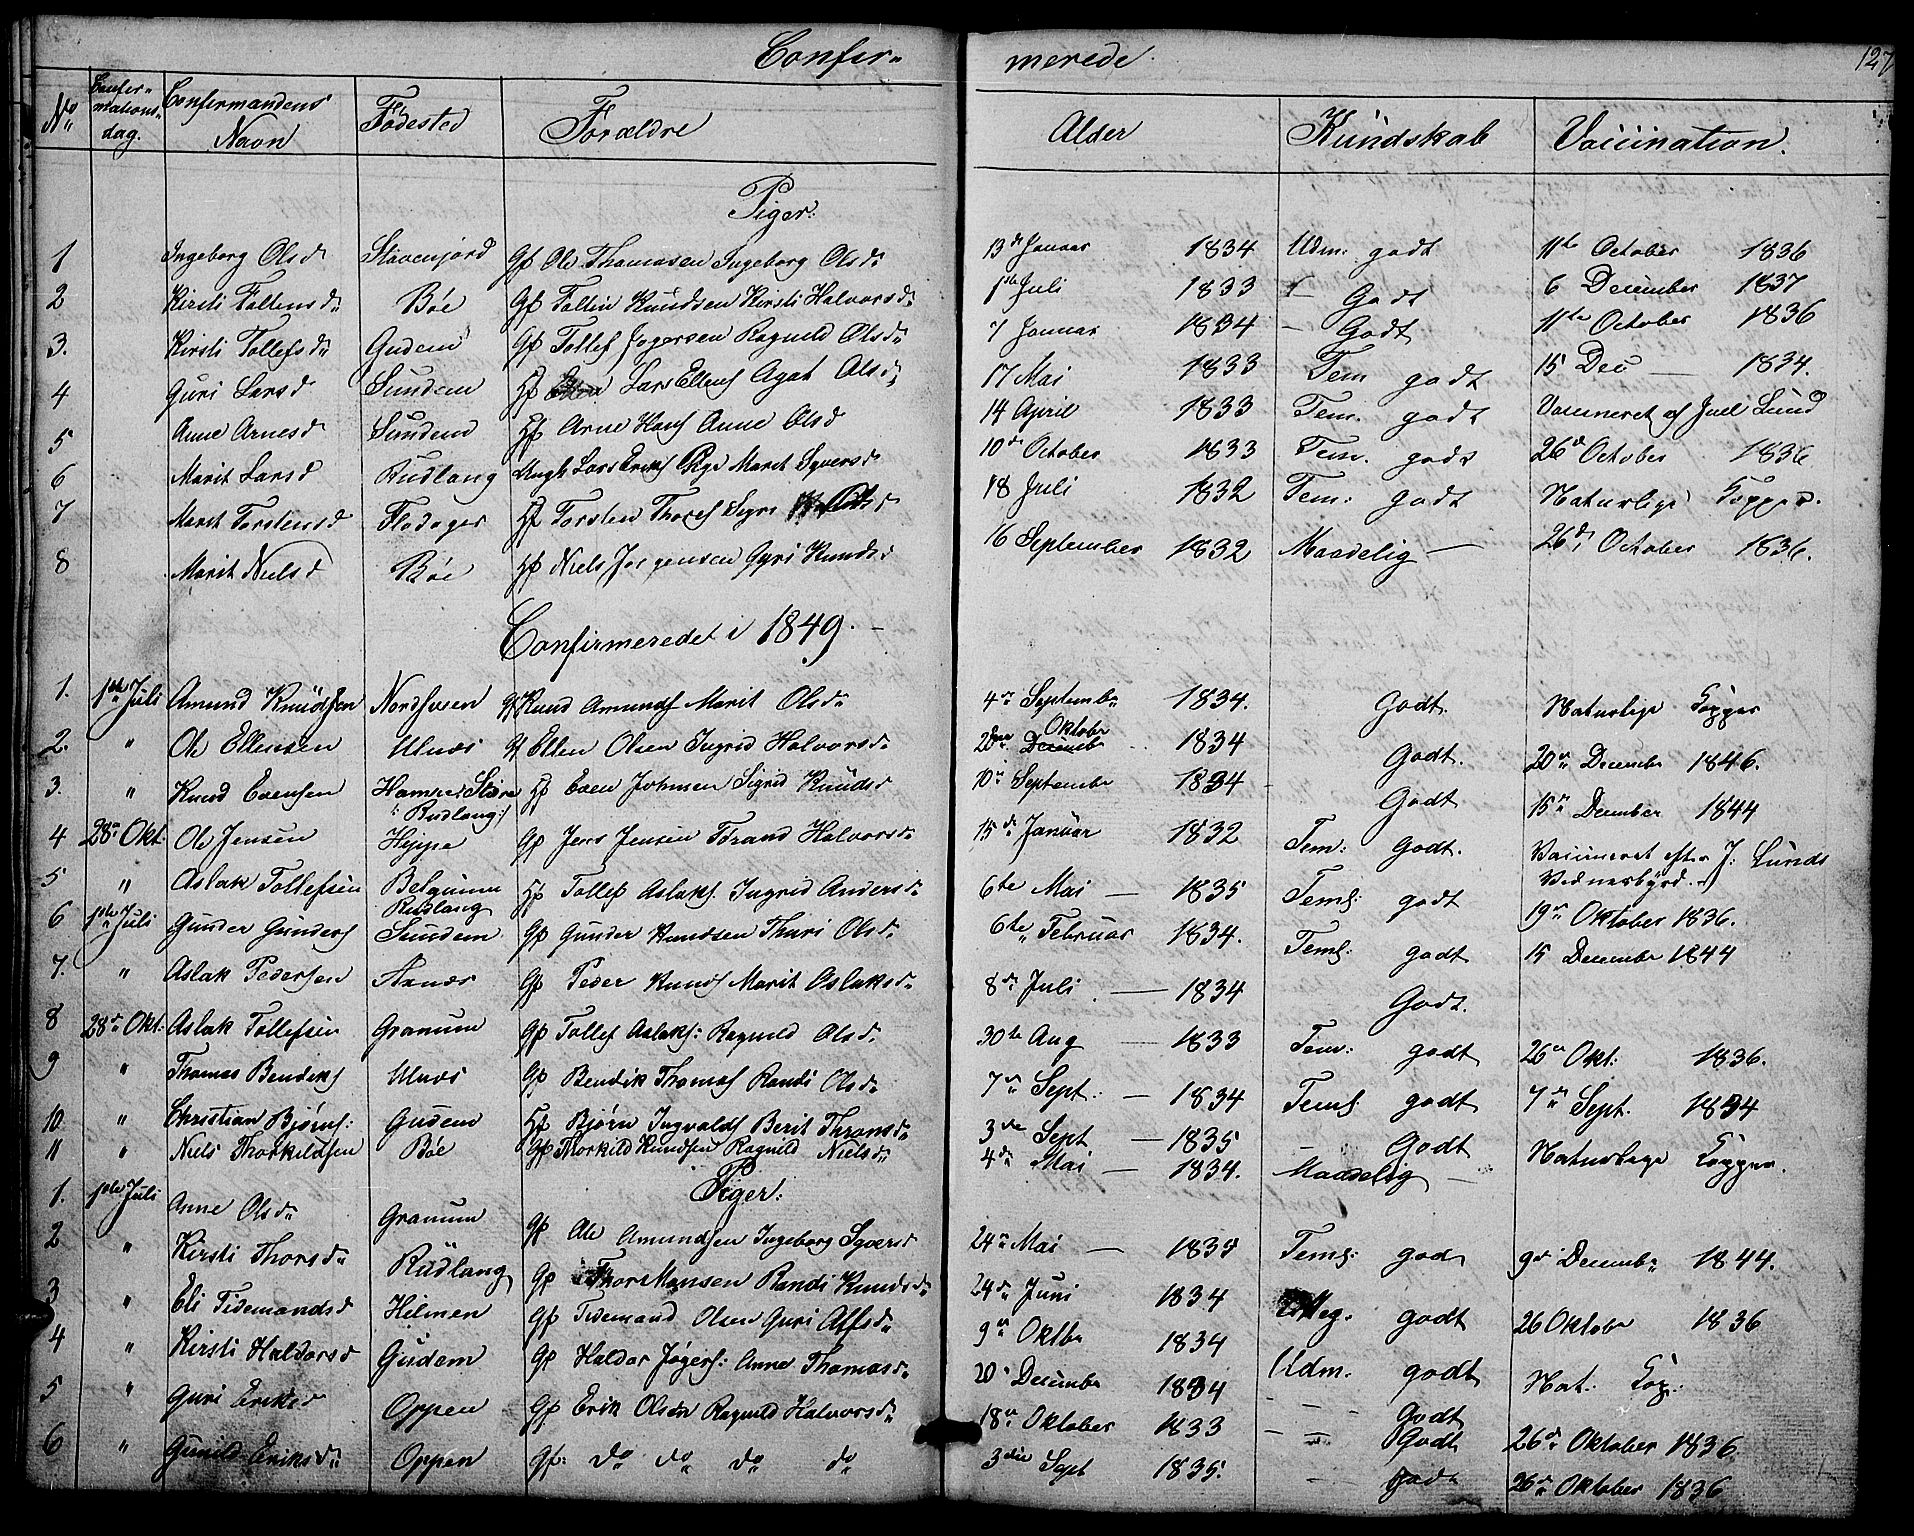 Confir- merede. 127
No Confirmations dag. Confirmandens Navn Fødested Forældre Alder Kundskab Vaccination.
Piger:
1 Ingeborg Olsdr Stavenjord Gf Ole Thomasen Ingeborg Olsdr 13de Januar 1834 Udm: godt 11te October 1836
2 Kirsti Fallensdr Bøe Gf Fallin Knudsen Kirsti Halvorsdr 1ste Juli 1833 Godt 6 December 1837
3. Kirsti Tollefsdr Gudem Gf Tollef Jøgersen Ragnild Olsdr 7 Januar 1834 – Godt 11te October 1836
4 Guri Larsd Sundem Hf Lars Ellens Agat Olsdr 17 Mai 1833 Tem godt 15 Dec – 1834.
5 Anne Arnesd Sundem Hf Arne Hans Anne Olsd 14 April 1833 Tem. godt Vaccineret af Juel Lund
6 Marit Larsd Rudlang Ungk Lars Eriks Pige Marit Syversd 10de October 1833 Tem. godt 26de October 1836
7 Marit Torstensd Flodager Hf Torsten Thores Sigri Olsd 18 Juli 1832 Tem: godt Naturlige Kopper.
8 Marit Nielsd Bøe Hf Niels Jørgensen Gyri Knudsd 16 September 1832 Maadelig – 26de October 1836.
Confirmeredet i 1849. –
1. 1ste Juli Amund Knudsen Nordsveen Gf Knud Amunds Marit Olsdr 4de Septembr 1834. Godt. Naturlige Kopper
2. " Ole Ellensen Ulnæs Gf Ellen Olsen Ingrid Halvorsdr 20de Oktobr Decembr 1834 Godt. 20de Decembr 1846.
3. " Knud Evensen Hamre Slidre Hf Even Johnsen Sigrid Knudsd 10de Septembr 1834 Godt 15de December 1844
Rudlang:
4 28de Okt: Ole Jensen Hippe Gf Jens Jensen Torand Halvorsdr 15de Januar 1832 Tem: Godt. Vaccineret efter J: Lunds Vidnesbyrd.
5 " Aslak Tollefsen Belgum Rudlang Hf Tollef Aslaks. Ingrid Andersdr 6te Mai – 1835 Teml: godt 19de Oktober 1836.
6 1ste Juli Gunder Gunders Sundem Gf Gunder Knudsen Thuri Olsdr 6te Februar 1834. Teml: godt 15 Decembr 1844
7. " Aslak Pedersen Gf Peder Knuds Marit Aslaksdr 8de Juli – 1834 Godt.
8 28de Okt: Aslak Tollefsen Granum Gf Tollef Aslaks: Ragnild Olsdr 30te Aug – 1833 Tem: godt 26de Okt: 1836.
9 " Thomas Bendiks Ulnæs Gf Bendik Thomas Randi Olsdr 7de Sept: – 1834 Teml godt 7de Sept. 1834
10 " Christian Bjørns: Gudem Hf Bjørn Ingvalds Berit Thronsdr 3de Sept – 1835 – Godt Naturlige Kopper.
11 " Niels Thorkildsen Bøe Gf Thorkild Knudsen Ragnild Nielsdr 4de Mai – 1834. Maadelig –
Piger:
1. 1ste Juli Anne Olsdr Granum Gf Ole Amundsen Ingeborg Syversd 24de Mai – 1834 Teml: god 9de Decembr 1844.
2 " Kirsti Thorsdr Rudlang Gf Thor Monsen Randi Knudsdr 24de Juni 1834 Meg. godt 26 Oktobr 1836
3 " Eli Tidemandsd Hilmen Gf Tidemand Olsen Guri Alfsdr 9de Oktbr 1834 Udm. godt Nat: Kop:
4 " Kirsti Haldorsd Gudem Gf Haldor Jøgers: Anne Thomasdr 20de Decembr 1834 – – – Godt
5 " Guri Eriksd Oppen Gf Erik Olsen Ragnild Halvorsdr 18de Oktober 1833 – – Godt 26de Oktober 1836.
6 " Gunild Eriksdr Oppen Gf: do do do do 3die Sept 1835. – Godt 26de Oktober 1836